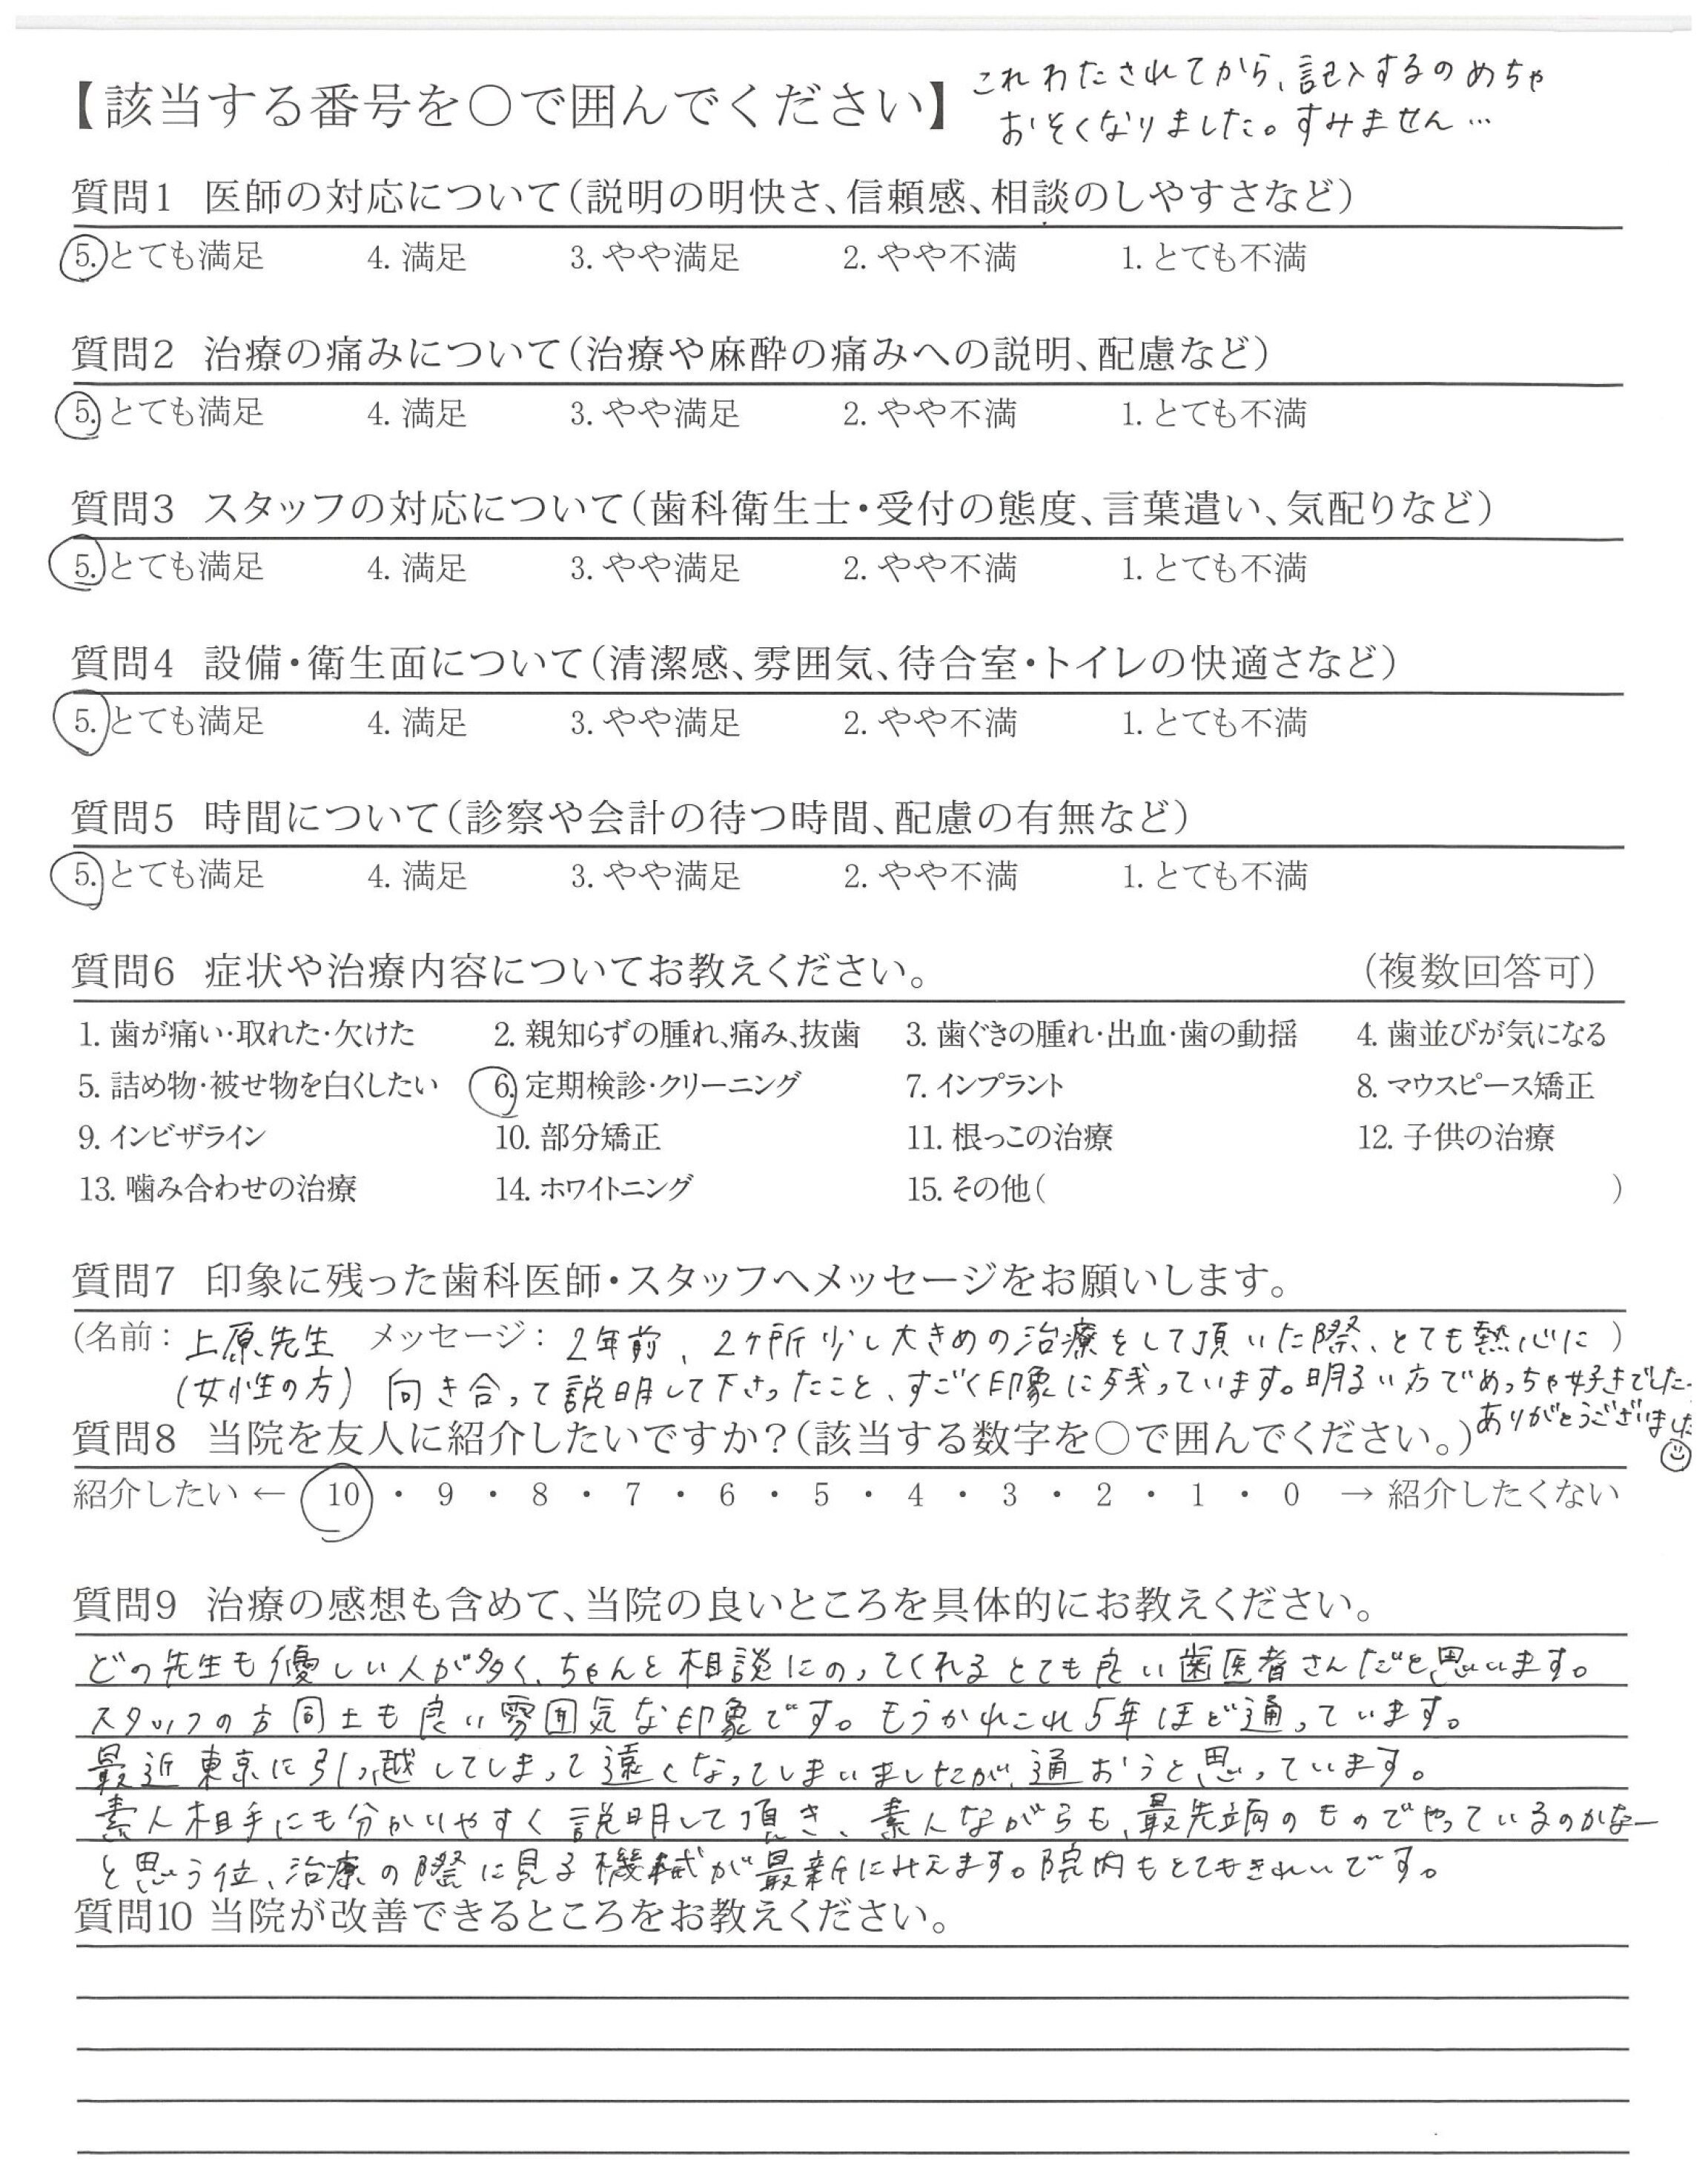 【該当する番号を○で囲んでください】 これわたされてから、記入するのめちゃ
おそくなりました。すみません…
質問1 医師の対応について(説明の明快さ、信頼感、相談のしやすさなど)
5. とても満足 4. 満足 3. やや満足 2. やや不満 1. とても不満
質問2 治療の痛みについて(治療や麻酔の痛みへの説明、配慮など)
5. とても満足 4. 満足 3. やや満足 2. やや不満 1. とても不満
質問3 スタッフの対応について(歯科衛生士・受付の態度、言葉遣い、気配りなど)
5. とても満足 4. 満足 3. やや満足 2. やや不満 1. とても不満
質問4 設備・衛生面について(清潔感、雰囲気、待合室・トイレの快適さなど)
5. とても満足 4. 満足 3. やや満足 2. やや不満 1. とても不満
質問5 時間について(診察や会計の待つ時間、配慮の有無など)
5. とても満足 4. 満足 3. やや満足 2. やや不満 1. とても不満
質問6 症状や治療内容についてお教えください。 (複数回答可)
1. 歯が痛い・取れた・欠けた 2. 親知らずの腫れ、痛み、抜歯 3. 歯ぐきの腫れ・出血・歯の動揺 4. 歯並びが気になる
5. 詰め物・被せ物を白くしたい 6. 定期検診・クリーニング 7. インプラント 8. マウスピース矯正
9. インビザライン 10. 部分矯正 11. 根っこの治療 12. 子供の治療
13. 噛み合わせの治療 14. ホワイトニング 15. その他( )
質問7 印象に残った歯科医師・スタッフへメッセージをお願いします。
(名前: 上原先生 メッセージ: 2年前、2ヶ所少し大きめの治療をして頂いた際、とても熱心に )
(女性の方) 向き合って説明して下さったこと、すごく印象に残っています。明るい方でめっちゃ好きでした。
ありがとうございました
質問8 当院を友人に紹介したいですか?(該当する数字を○で囲んでください。)
紹介したい ← 10 ・ 9 ・ 8 ・ 7 ・ 6 ・ 5 ・ 4 ・ 3 ・ 2 ・ 1 ・ 0 → 紹介したくない
質問9 治療の感想も含めて、当院の良いところを具体的にお教えください。
どの先生も優しい人が多く、ちゃんと相談にのってくれるとても良い歯医者さんだと思います。
スタッフの方同士も良い雰囲気な印象です。もうかれこれ5年ほど通っています。
最近東京に引っ越してしまって遠くなってしまいましたが、通おうと思っています。
素人相手にも分かりやすく説明して頂き、素人ながらも、最先端のものでやっているのかなー
と思う位、治療の際に見る機械が最新にみえます。院内もとてもきれいです。
質問10 当院が改善できるところをお教えください。